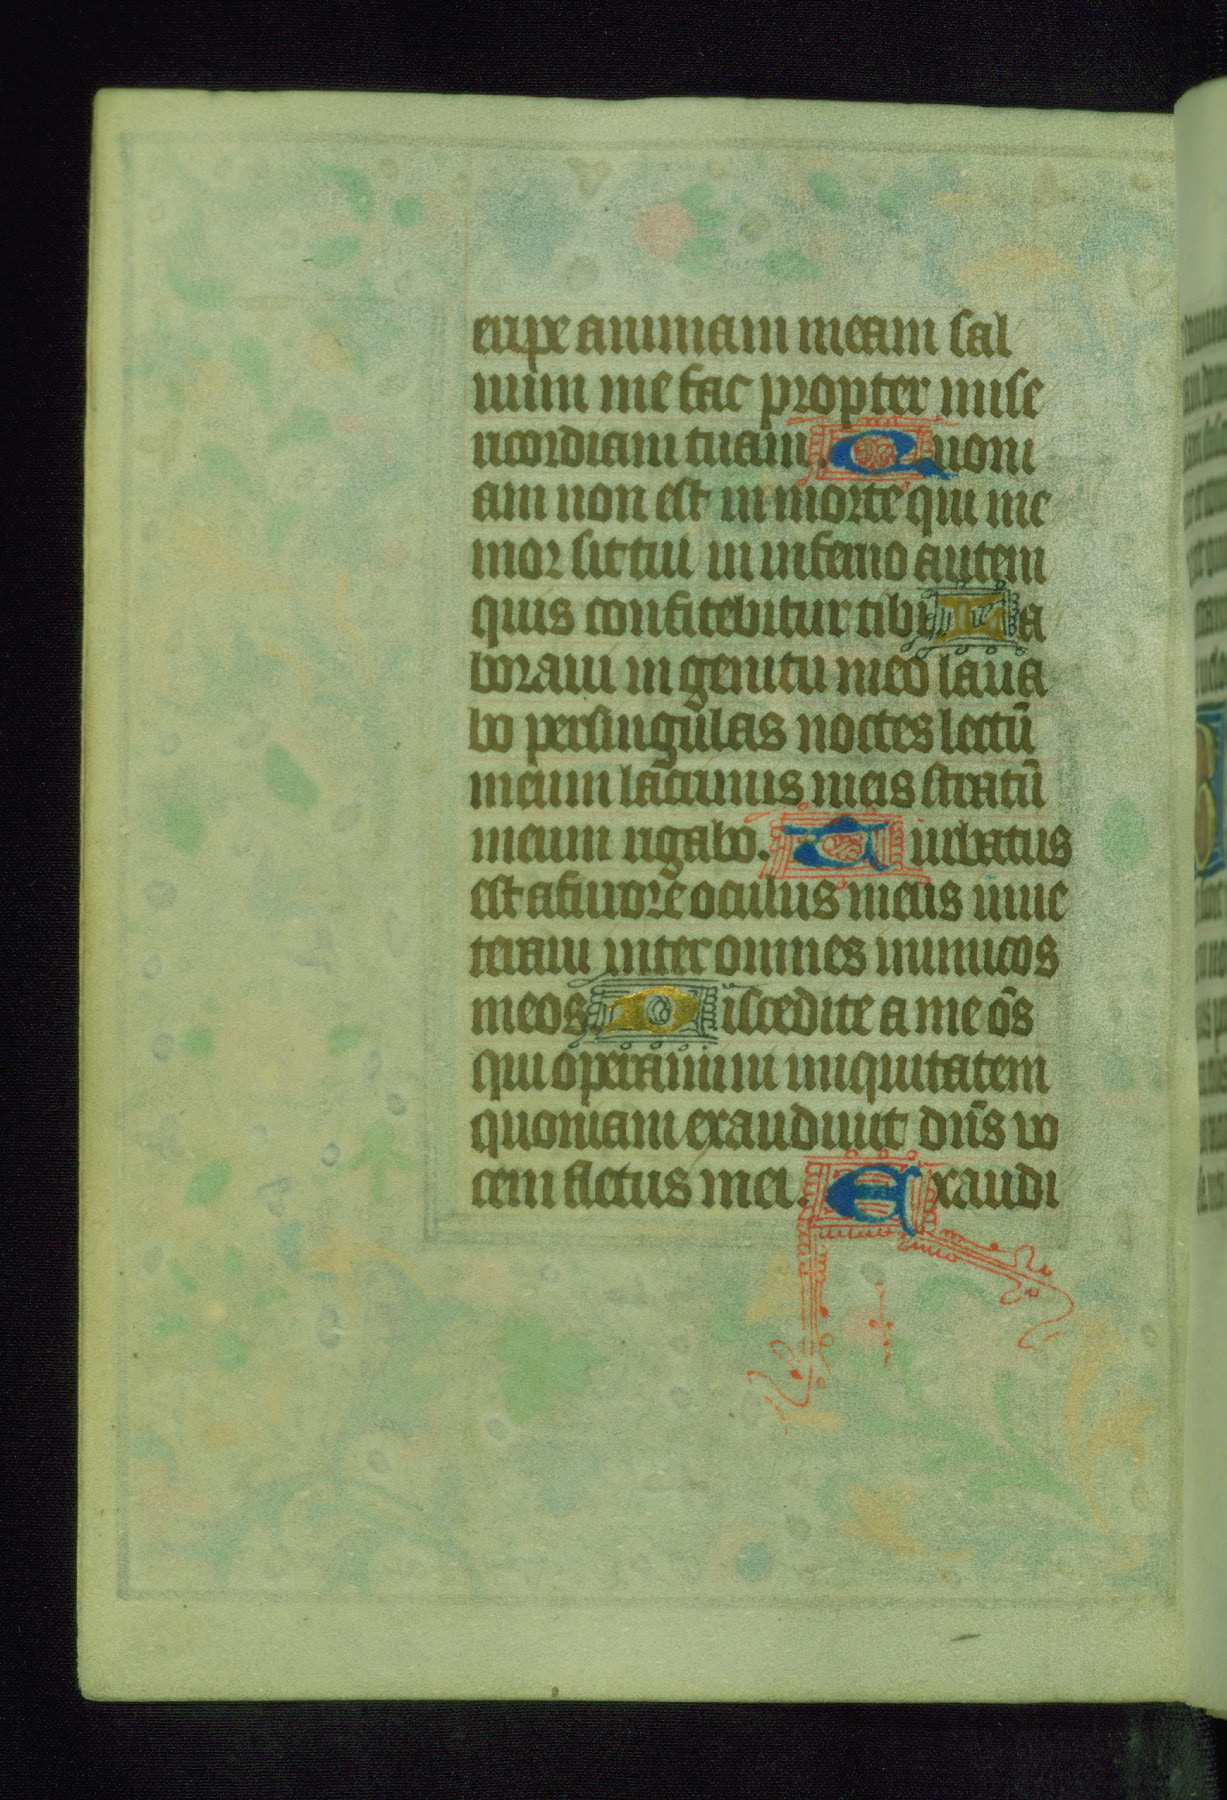 eripe animam meam sal
uum me fac propter mise
ricordiam tuam. Quoni
am non est in morte qui me
mor sit tui in inferno autem
quis confitebitur tibi La
boraui in gemitu meo laua
bo per singulas noctes lectū
meum lacrimis meis stratū
meum rigabo. Turbatus
est a furore oculus meus inue
teraui inter omnes inimicos
meos Discedite a me oēs
qui operamini iniquitatem
quoniam exaudiuit dn̄s vo
cem fletus mei. Exaudi